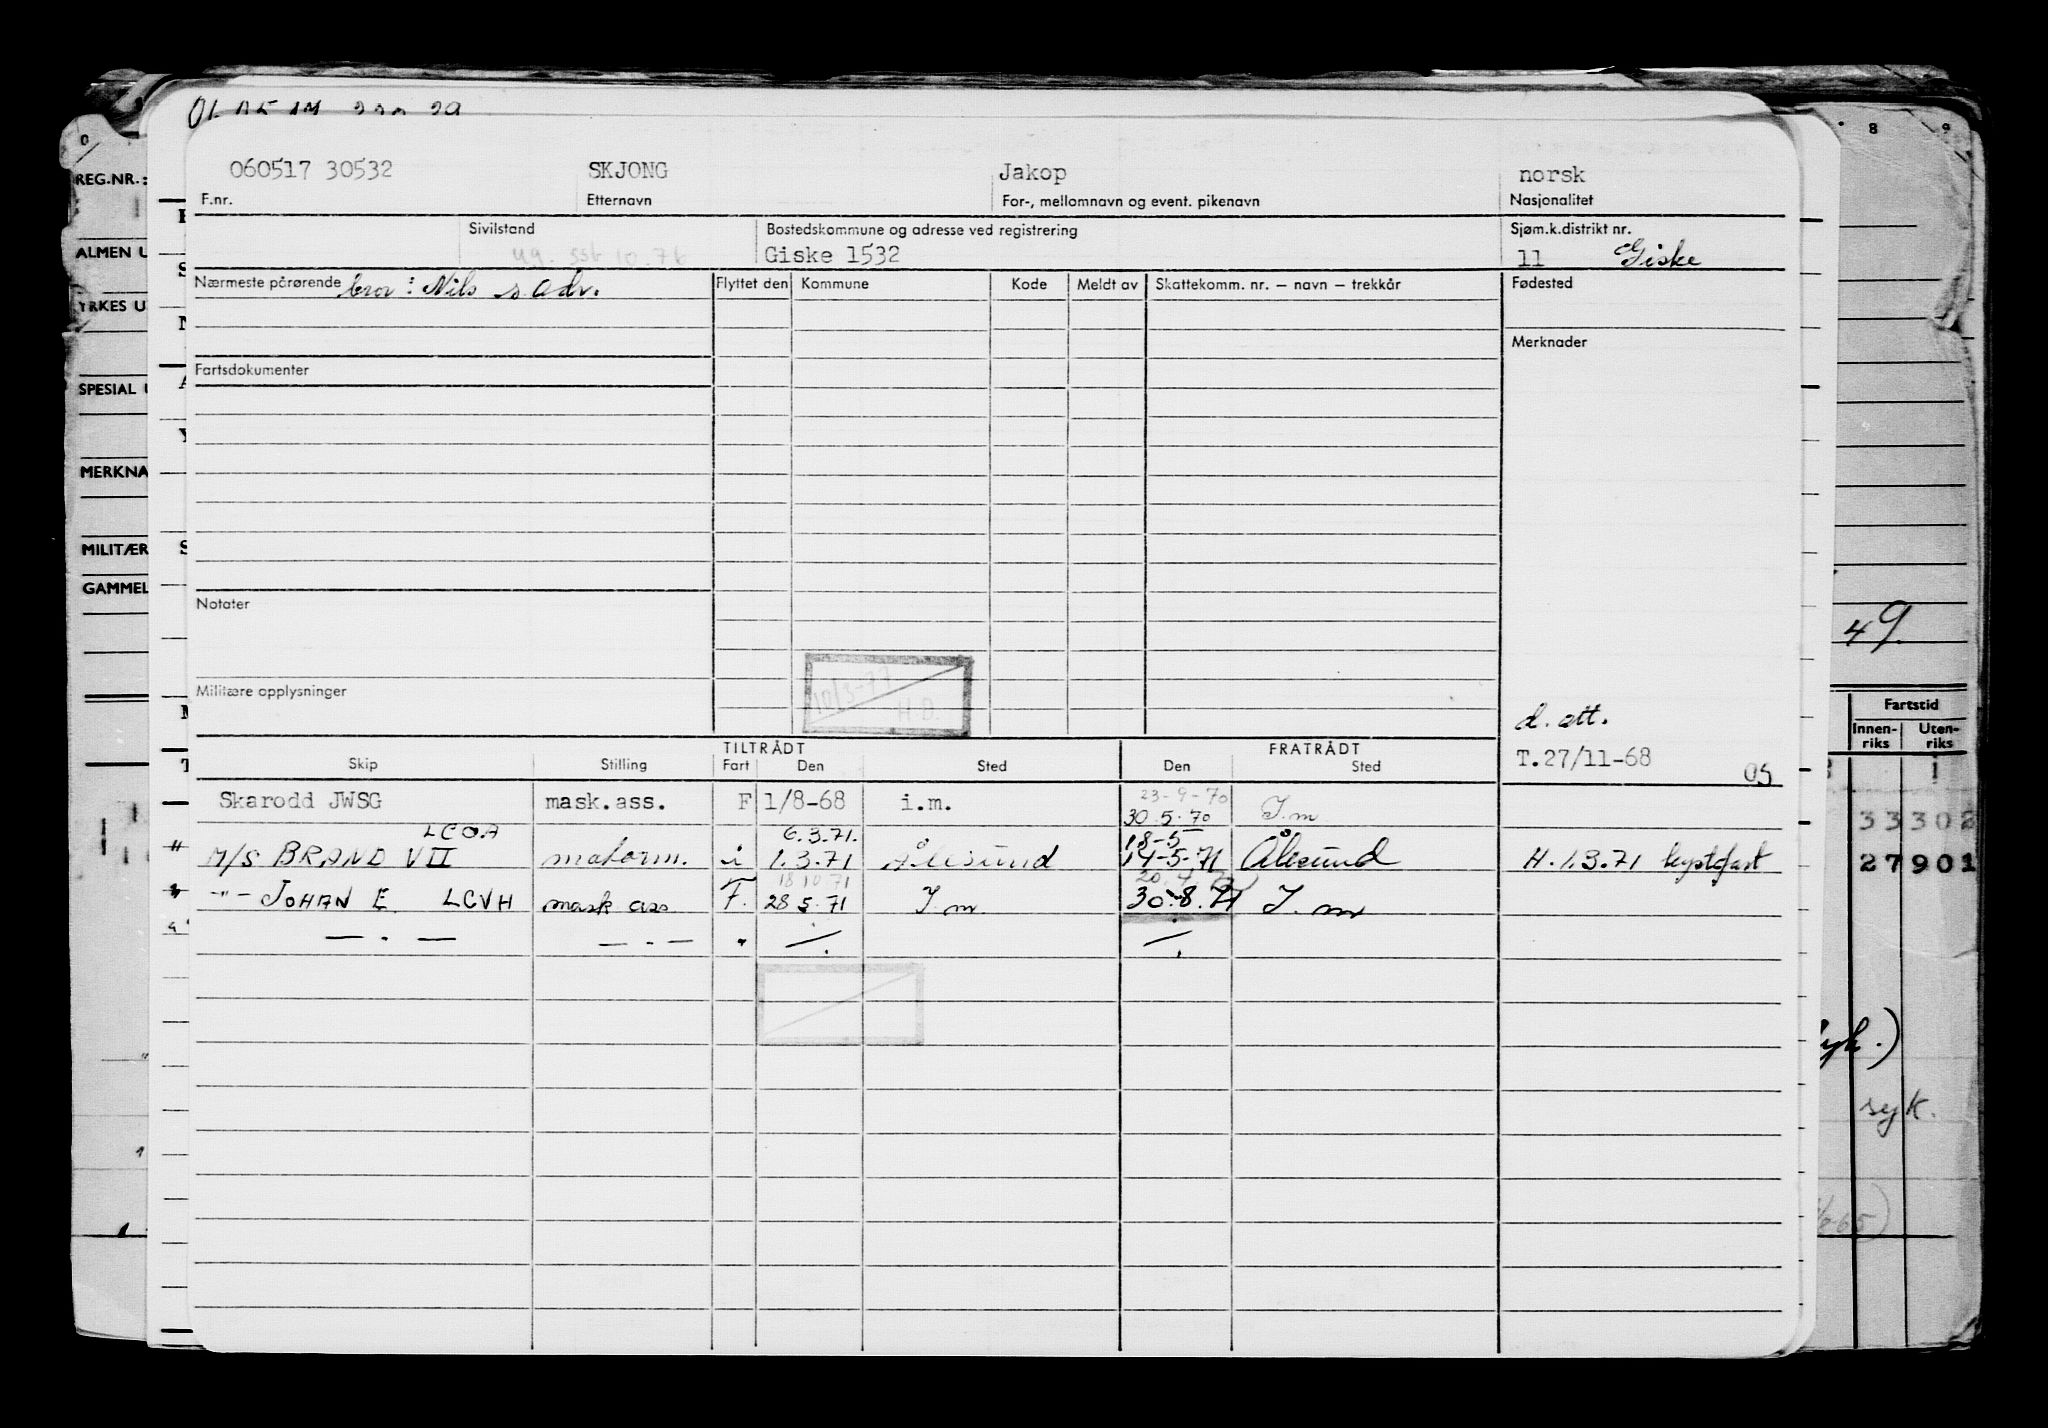 060517 30532 SKJONG Jakop norsk
F.nr. Etternavn For-, mellomnavn og event. pikenavn Nasjonalitet
Sivilstand Bostedskommune og adresse ved registrering Sjøm.k.distrikt nr.
Giske 1532 11 Giske
Nærmeste pårørende bror: Nils s. adr. Flyttet den Kommune Kode Meldt av Skattekomm. nr. – navn – trekkår Fødested
Merknader
Fartsdokumenter
Notater
10/3-77
H.D.
Militære opplysninger
d. att.
T.27/11-68
05
TILTRÅDT FRATRÅDT
Skip Stilling Fart Den Sted Den Sted
23-9-70
Skarodd JWSG mask.ass. F 1/8-68 i.m. 30.5.70 I.m
LCOA 6.3.71. 18-5
" M/S BRAND VII matorm. i 1.3.71 Ålesund 14-5-71 Ålesund H. 1.3.71 kystfart
18 10 71
" -"- JOHAN E. LCVH mask ass F. 28 5.71 I.m 30.8.71 I.m
— . — — . — " —/. —/.
REG.NR.:
ALMEN U
YRKES U
SPESIAL U
MERKNA
MILITÆR
GAMMEL
8 9
49.
Fartstid
Innen-riks Uten-riks
33302
27901
syk.)
syk.